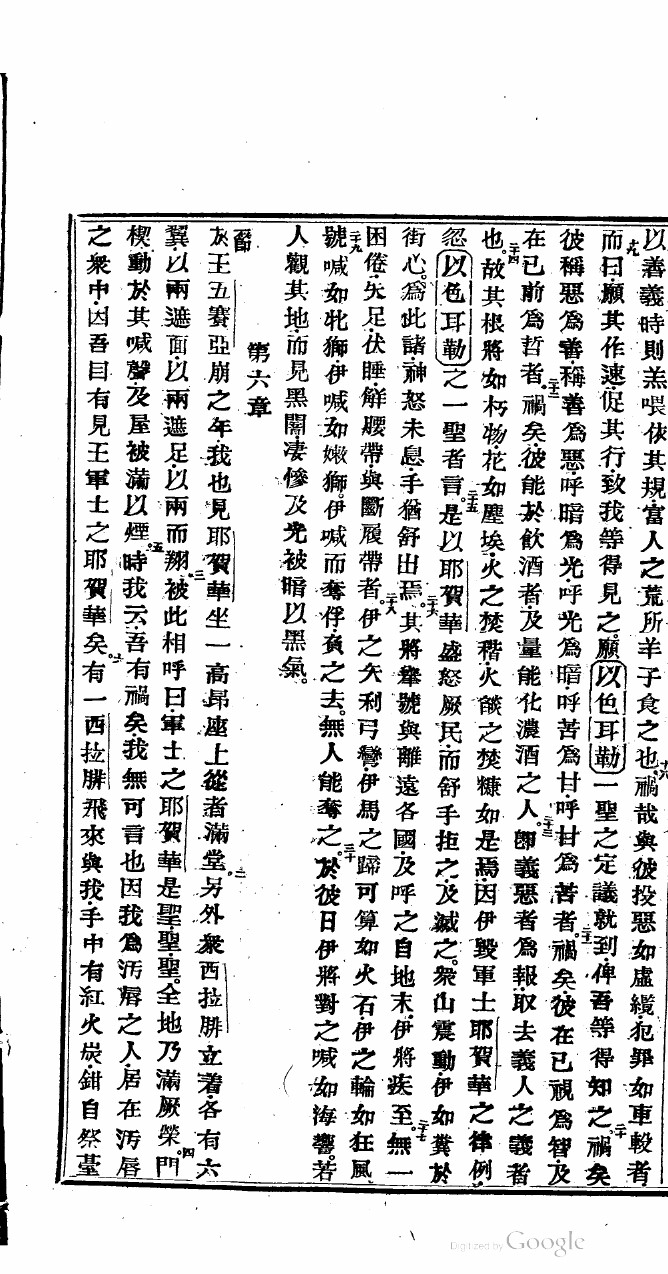 以善義時則羔喂依其規富人之荒所羊子食之也十八禍哉與彼投惡如虛纜犯罪如車轂者
十九而曰願其作速促其行致我等得見之願以色耳勒一聖之定議就到俾吾等得知之二十禍矣
彼稱惡爲善稱善爲惡呼暗爲光呼光爲暗呼苦爲甘呼甘爲苦者二十一禍矣彼在已視爲智及
在已前爲哲者二十二禍矣彼能於飲酒者及量能化濃酒之人二十三卽義惡者爲報取去義人之義者
也二十四故其根將如朽物花如塵埃火之焚稭火燄之焚糠如是焉因伊毀軍士耶賀華之律例
忽以色耳勒之一聖者言二十五是以耶賀華盛怒厥民而舒手拒之及滅之衆山震動伊如糞於
街心爲此諸神怒未息手猶舒出焉二十六其將舉號與離遠各國及呼之自地末伊將疾至二十七無一
困倦失足伏睡解腰帶與斷履帶者二十八伊之矢利弓彎伊馬之蹄可算如火石伊之輪如狂風
二十九號喊如牝獅伊喊如嫩獅伊喊而奪俘負之去無人能奪之三十於彼日伊將對之喊如海響若
人觀其地而見黑闇凄慘及光被暗以黑氣
第六章
節於王五賽亞崩之年我也見耶賀華坐一高昂座上從者滿堂二另外衆西拉腓立着各有六
翼以兩遮面以兩遮足以兩而翔三被此相呼曰軍士之耶賀華是聖聖聖全地乃滿厥榮四門
楔動於其喊聲及屋被滿以煙五時我云吾有禍矣我無可言也因我爲汚脣之人居在汚脣
之衆中因吾目有見王軍士之耶賀華矣六有一西拉腓飛來與我手中有紅火炭鉗自祭臺
Digitized by Google